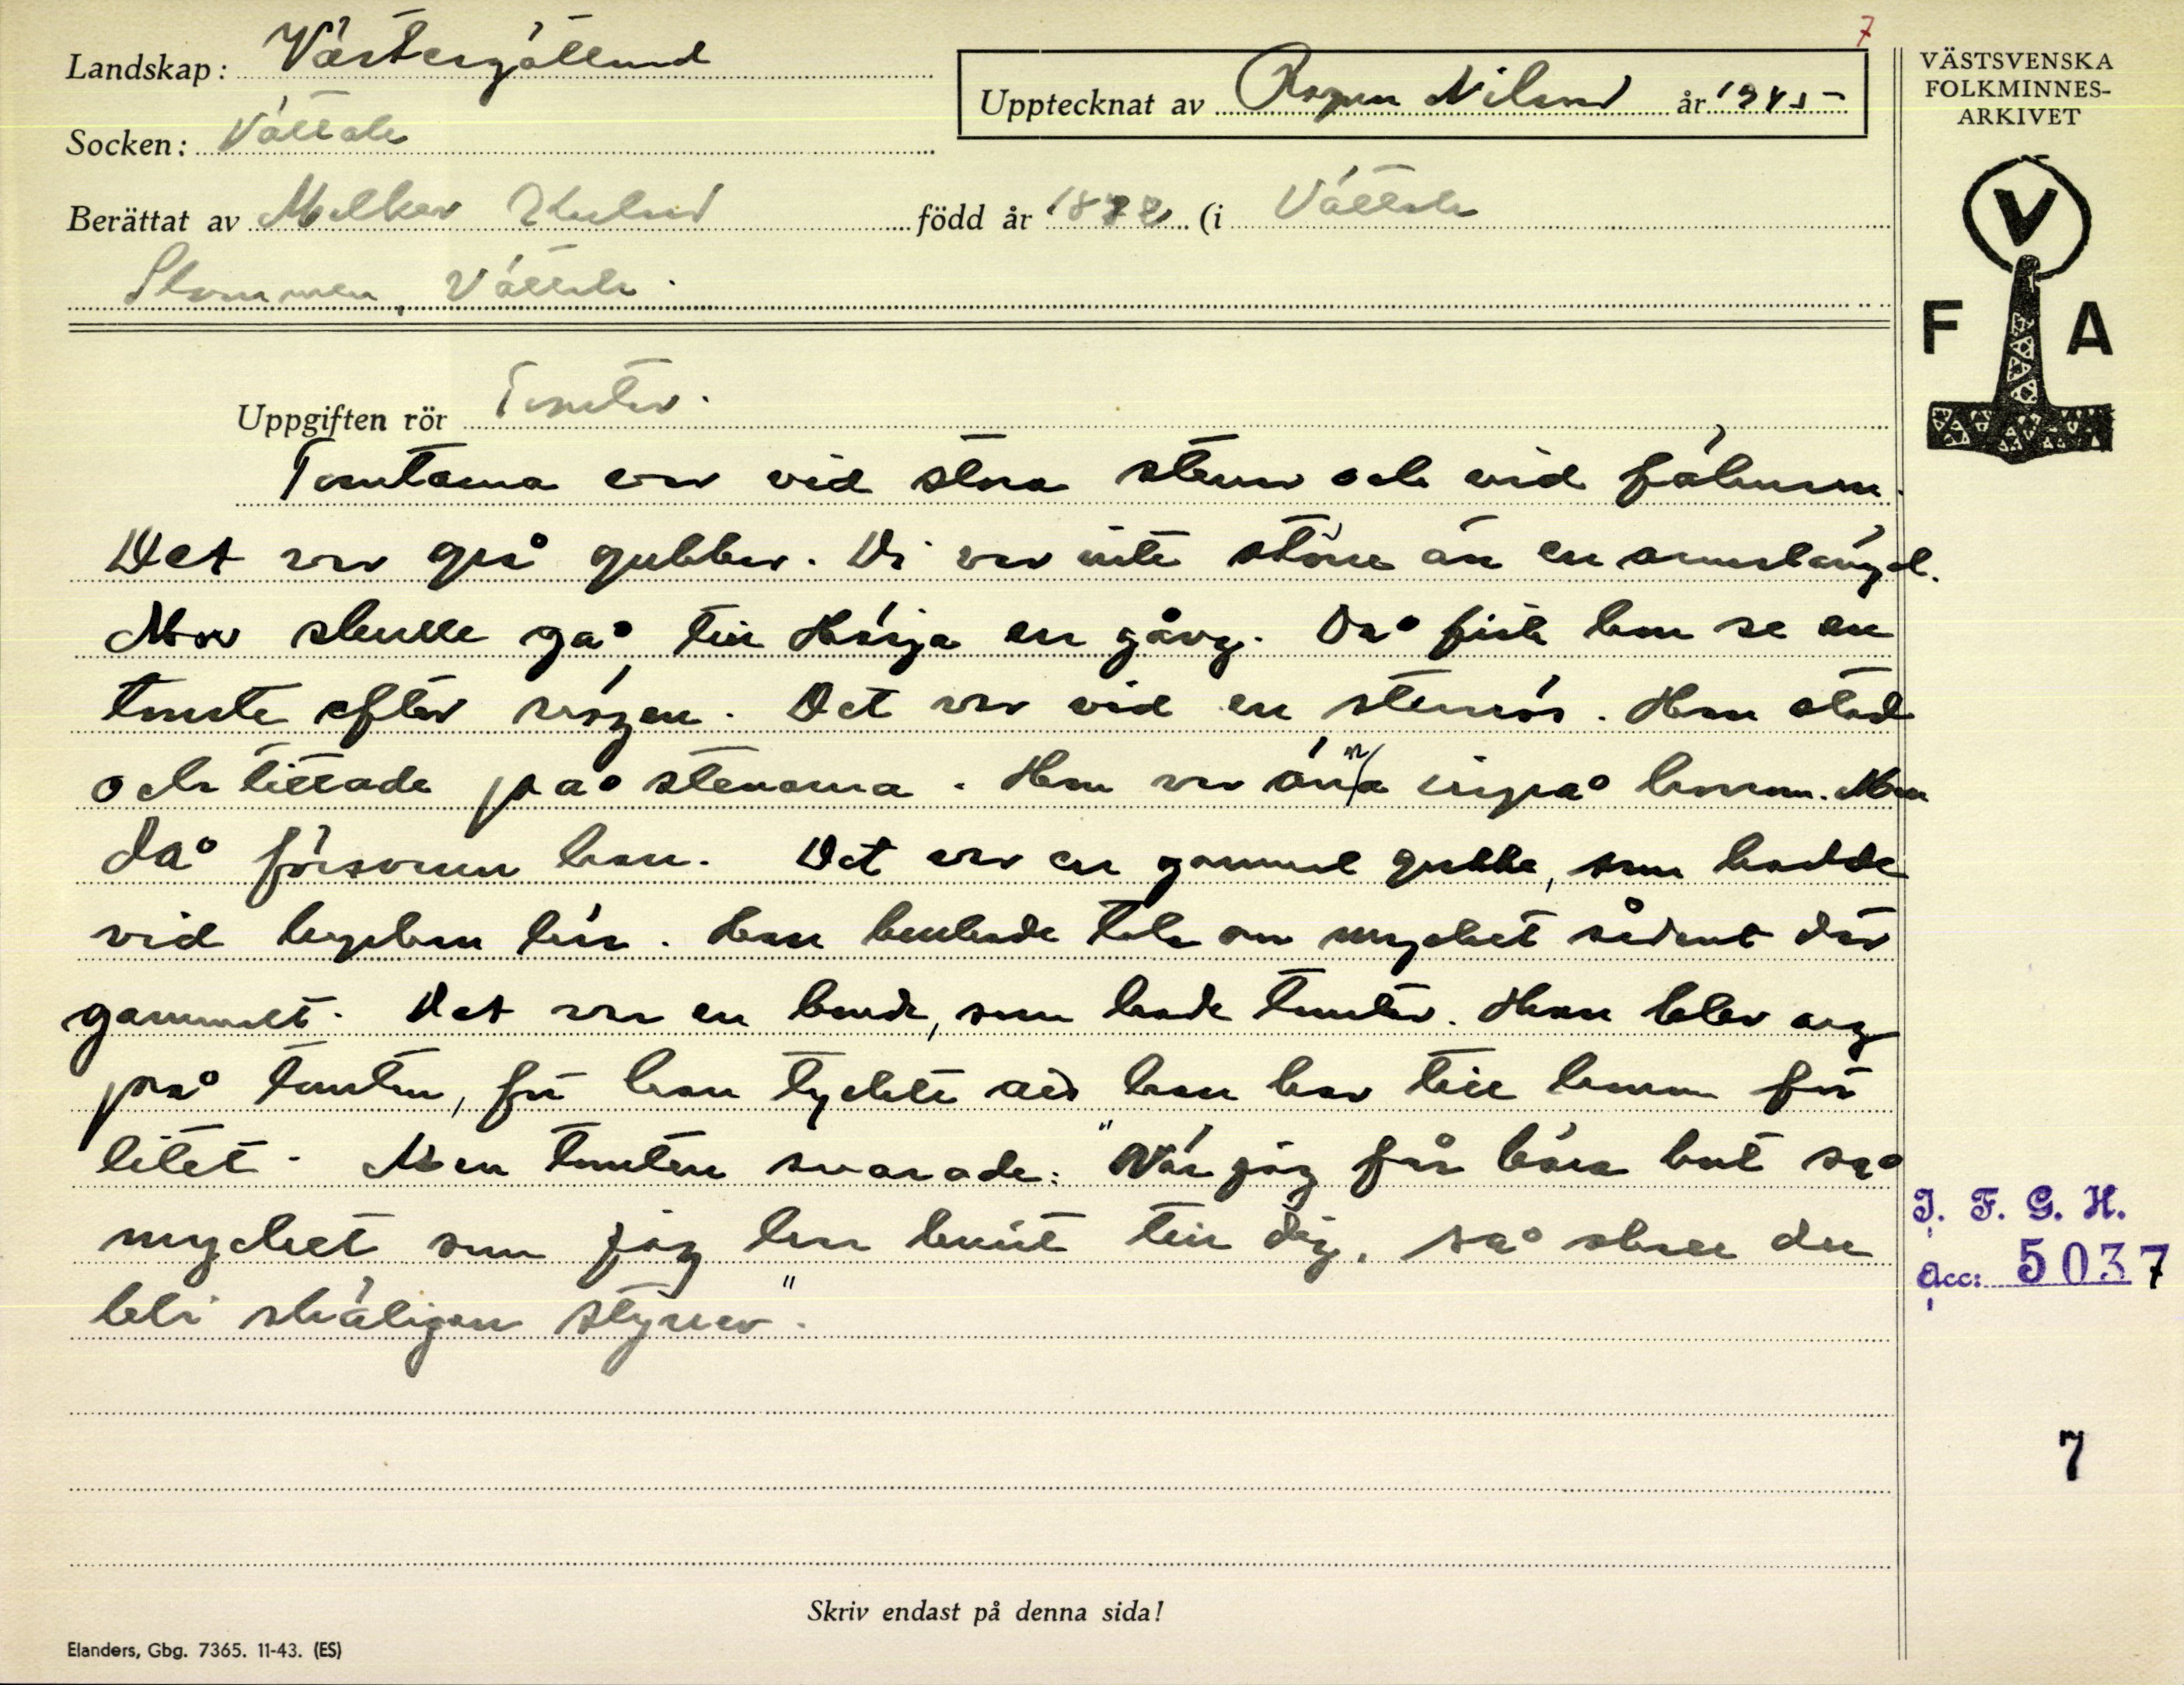 7
Landskap: Västergötland
Upptecknat av Ragnar Nilsson år 1945
VÄSTSVENSKA
FOLKMINNES-
ARKIVET
Socken: Vättak
Berättat av Melker född år (i Vättak
Slommen, Vättak.
V
F A
Uppgiften rör Tomter.
Tomtarna var vid stora stenar och vid fähusen.
Det var grå gubbar. Di var inte större än en armslängd.
Mor skulle gå till Härja en gång. Då fick hon se en
tomte efter vägen. Det var vid en stenrös. Hon stod
och tittade på stenarna. Hon var änna inpå honom. Men
då försvann han. Det var en gammal gubbe, som bodde
vid kyrkan här. Han brukade tala om mycket sådant där
gammalt. Det var en bonde, som hade tomtar. Han blev arg
på tomten, för han tyckte att han bar till honom för
litet. Men tomten svarade: "När jag får bära bort så
mycket som jag har burit till dig, så skall du
bli skäligen styver".
I. F. G. H.
Acc: 5037
7
Skriv endast på denna sida!
Elanders, Gbg. 7365. 11-43. (ES)